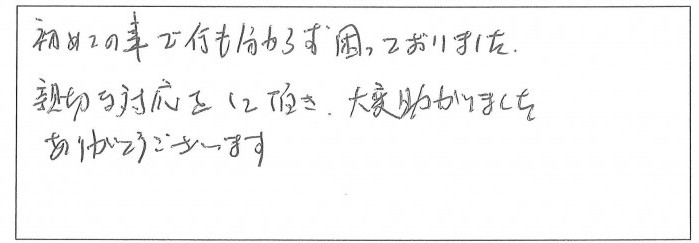 初めての事で何も分からず困っておりました.
親切な対応をして頂き、大変助かりました
ありがとうございます